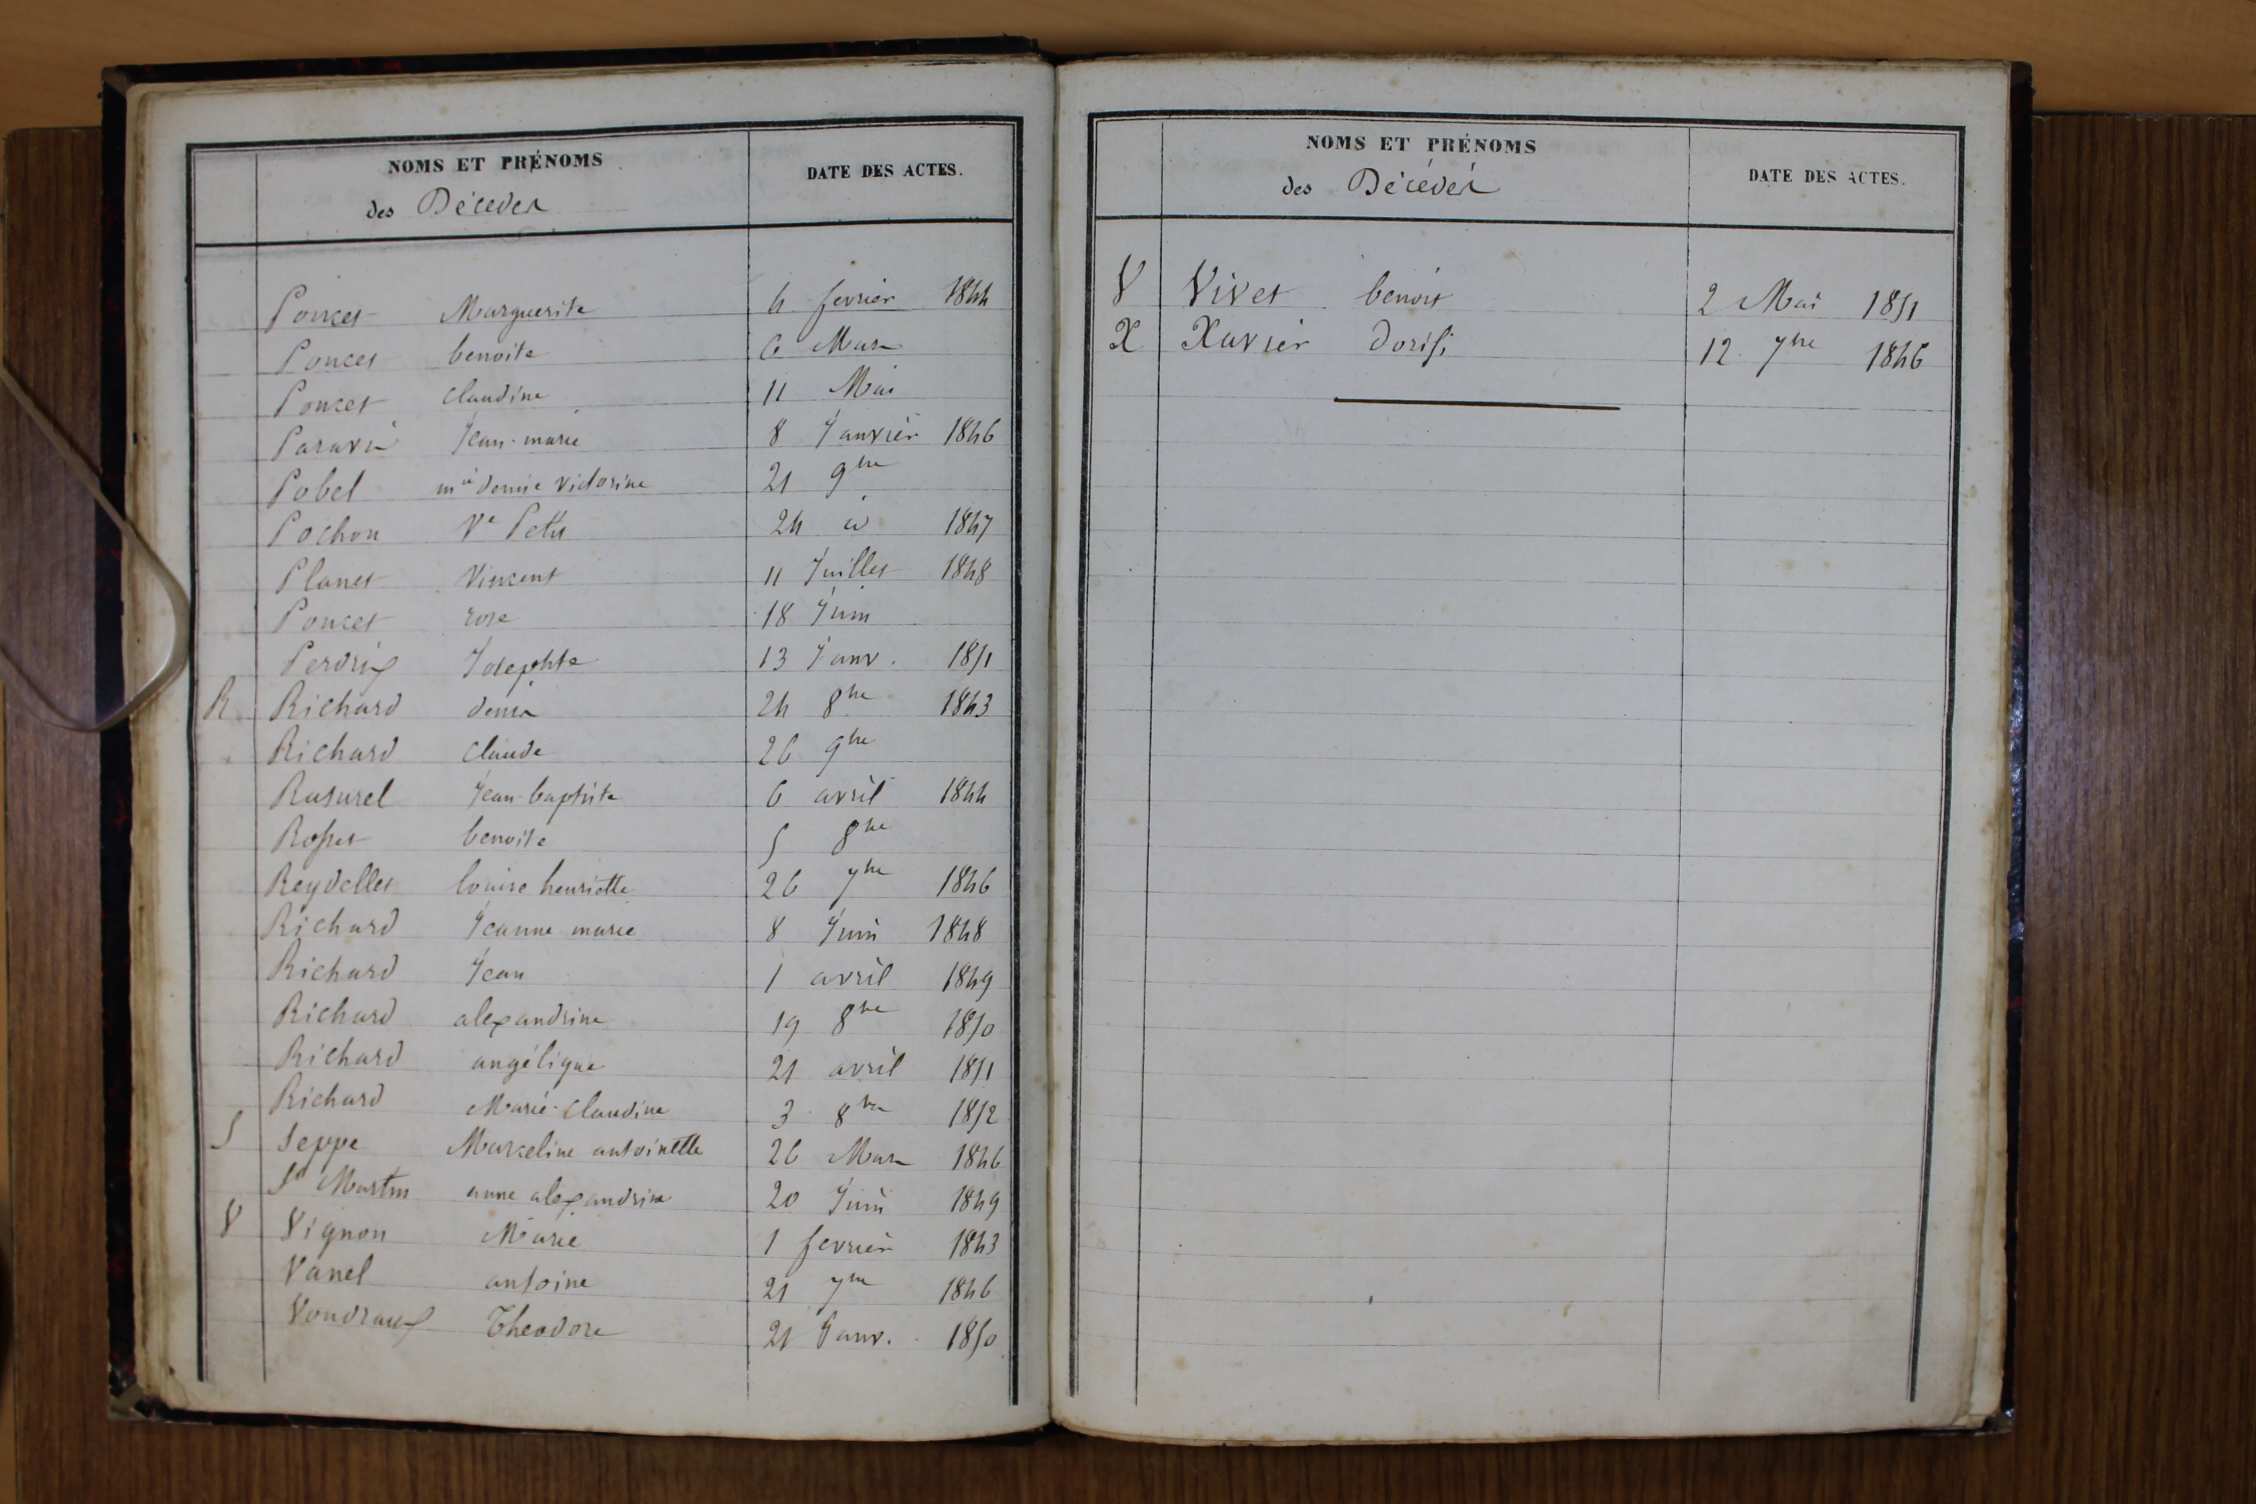 NOMS ET PRÉNOMS
des Décédés
DATE DES ACTES.
Poncet Marguerite 4 fevrier 1844
Poncet benoite 6 Mars
Poncet claudine 11 Mai
Paravis Jean-marie 8 Janvier 1846
Pobel mie denise victorine 21 9bre
Pochon Ve Petit 24 id 1847
Planet Vincent 11 Juillet 1848
Poncet rose 18 Juin
Perdrix Josephte 13 Janv. 1851
R Richard denis 24 8bre 1843
Richard claude 26 9bre
Rasurel Jean-baptiste 6 avril 1844
Rosset benoite 5 8bre
Reydellet louise henriette 26 7bre 1846
Richard Jeanne marie 8 Juin 1848
Richard Jean 1 avril 1849
Richard alexandrine 19 8bre 1850
Richard angélique 21 avril 1851
Richard Marie-Claudine 3 8bre 1852
S Seppe Marceline antoinette 26 Mars 1846
St Martin anne alexandrine 20 Juin 1849
V Vignon Marie 1 fevrier 1843
Vanel antoine 21 7bre 1846
Voudraux Theodore 21 Janv. 1850
NOMS ET PRÉNOMS
des Décédés
DATE DES ACTES.
V Vivet benoit 2 Mai 1851
X Xavier 12 7bre 1846